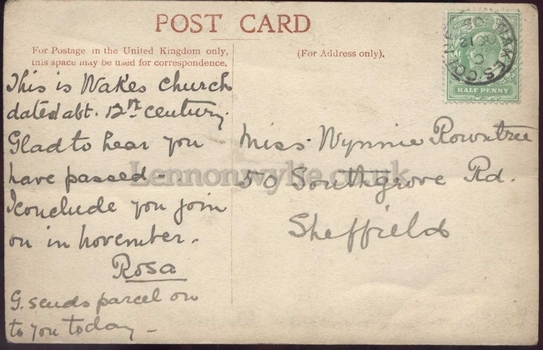 POST CARD
For Postage in the United Kingdom only,
this space may be used for correspondence.
(For Address only).
This is Wakes Church
dated abt. 12th century.
Glad to hear you
have passed -
I conclude you join
on in november.
Rosa
G. sends parcel on
to you today -
Miss Wynnie Rowntree
50 Southgrove Rd.
Sheffield
HALF PENNY
WAKES COLNE
Lennonwylie.co.uk